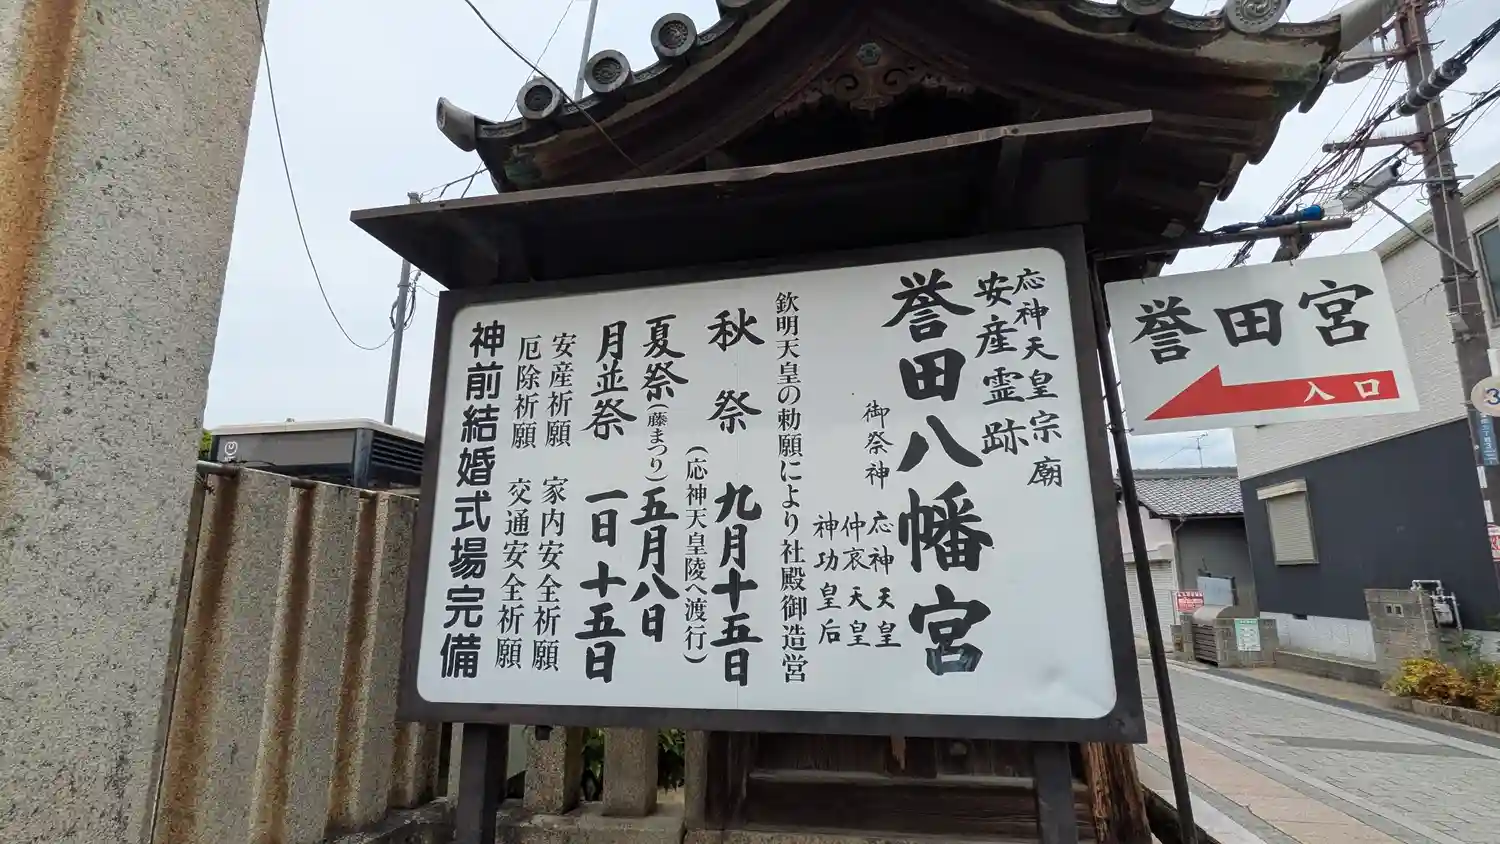 応神天皇宗廟
安産霊跡
誉田八幡宮
御祭神
応神天皇
仲哀天皇
神功皇后
欽明天皇の勅願により社殿御造営
秋祭 九月十五日
(応神天皇陵へ渡行)
夏祭(藤まつり)五月八日
月並祭 一日十五日
安産祈願 家内安全祈願
厄除祈願 交通安全祈願
神前結婚式場完備
誉田宮
入口